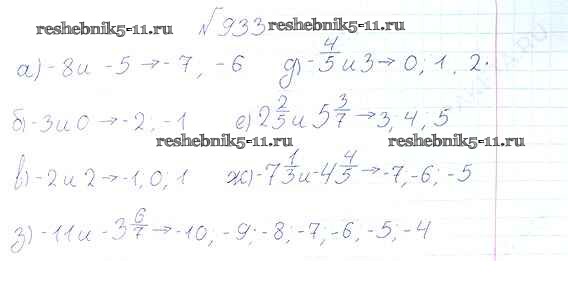 reshebnik5-11.ru №933 reshebnik5-11.ru
а) -8 и -5 → -7, -6 д) -4/5 и 3 → 0; 1, 2.
б) -3 и 0 → -2, -1 е) 2 2/5 и 5 3/7 → 3; 4; 5
reshebnik5-11.ru reshebnik5-11.ru
в) -2 и 2 → -1, 0, 1 ж) -7 1/3 и -4 4/5 → -7, -6; -5
з) -11 и -3 6/7 → -10; -9; -8; -7; -6, -5; -4